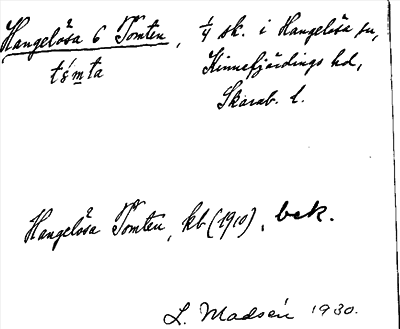 Hangelösa 6 Tomten, 1/4 sk. i Hangelösa sn,
tśm̲ta Kinnefjärdings hd,
Skarab. l.
Hangelösa Tomten, kb (1910), bek.
L. Madsén 1930.